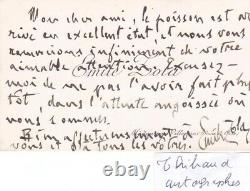 Mon cher ami, le poisson est ar-
rivé en excellent état, et nous vous
remercions infiniment de votre
aimable attention. Excusez-
moi de ne pas l'avoir fait plus
tôt, dans l'attente angoissée où
nous sommes.
Bien affectueusement à
vous et à tous les vôtres. Emile Zola
Emile Zola
Thibaud
autographes